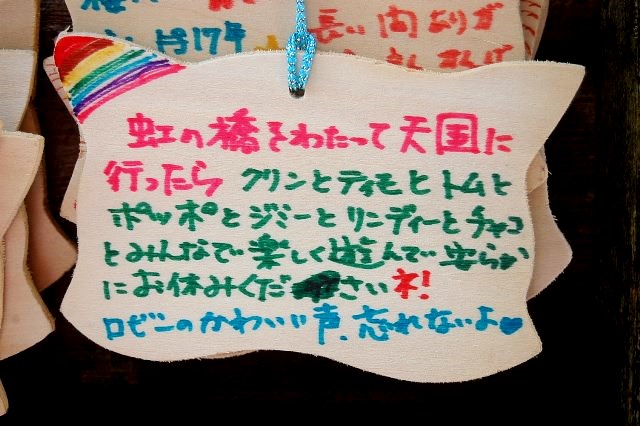 長い間ありが
17年
虹の橋をわたって天国に
行ったら クリンとティモとトムと
ポッポとジミーとリンディーとチャコ
とみんなで楽しく遊んで安らか
にお休みくださいネ!
ロビンのかわいい声、忘れないよ♥